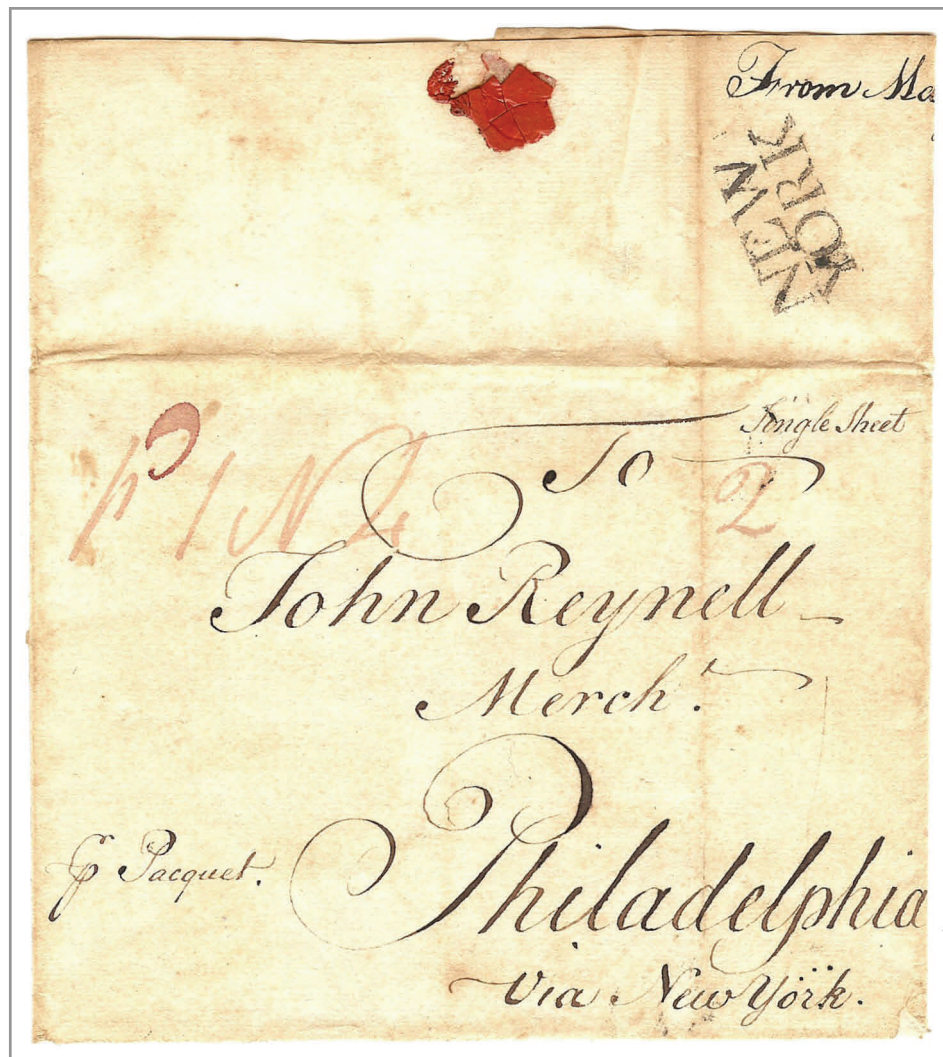 From Ma
NEW
YORK
Single Sheet
To
2
John Reynell
Mercht.
Philadelphia
p Pacquet.
Via New York.